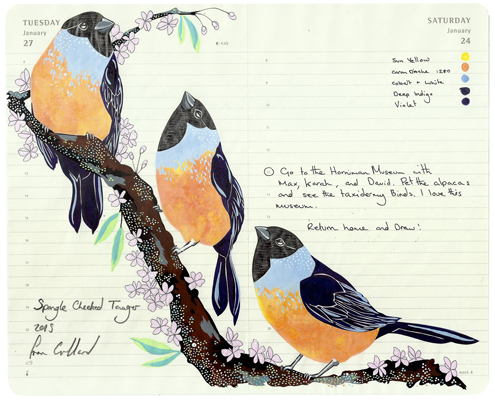 TUESDAY
January
27
SATURDAY
January
24
Sun Yellow
cobalt + white
Deep Indigo
Violet
Go to the Horniman Museum with
Max, Sarah, and David. Pet the alpacas
and see the taxidermy Birds. I love this
museum.
Return home and Draw:
Spangle Cheeked Tanager
2015
week 4